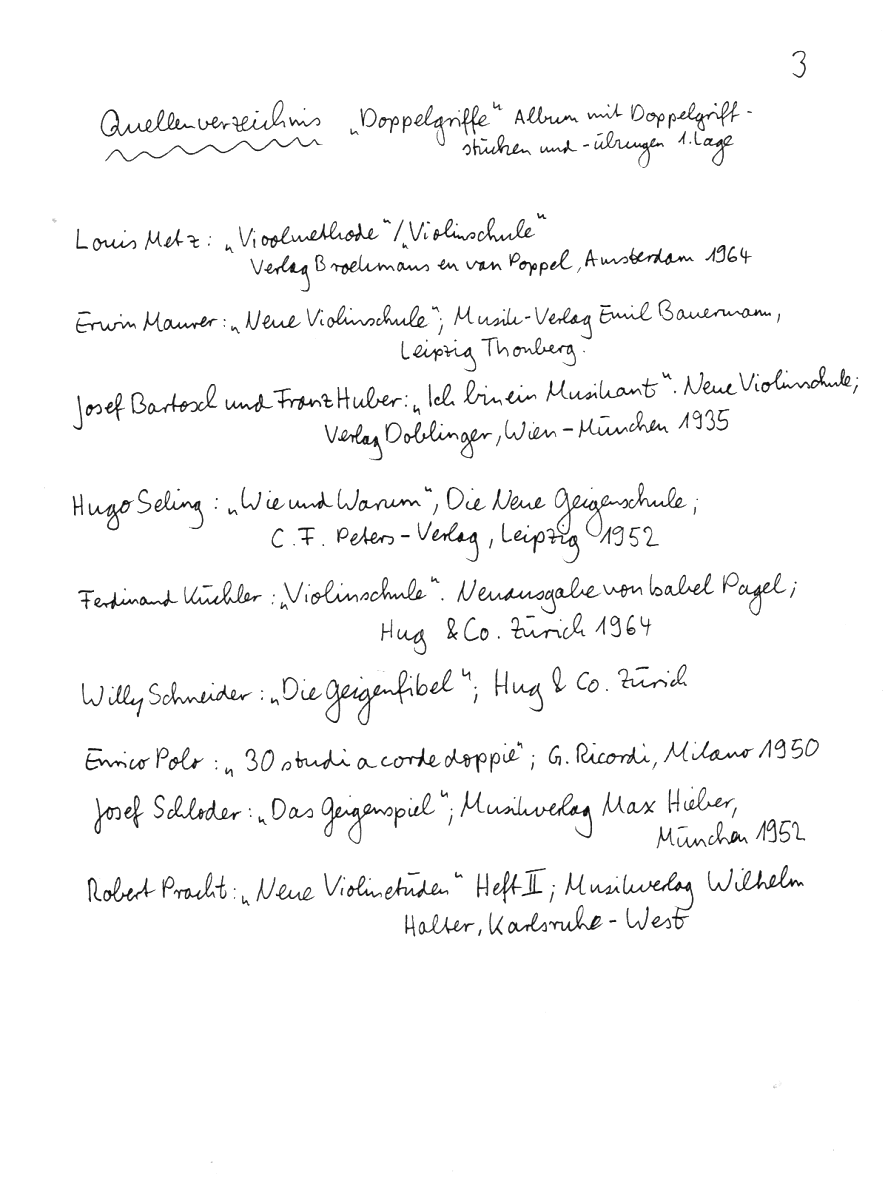 3
Quellenverzeichnis „Doppelgriffe“ Album mit Doppelgriff-
stücken und -übungen 1. Lage
Louis Metz: „Vioolmethode“/„Violinschule“
Verlag Broekmans en van Poppel, Amsterdam 1964
Erwin Maurer: „Neue Violinschule“; Musik-Verlag Emil Bauermann,
Leipzig Thonberg.
Josef Bartosch und Franz Huber: „Ich bin ein Musikant“. Neue Violinschule;
Verlag Doblinger, Wien-München 1935
Hugo Seling: „Wie und Warum“, Die Neue Geigenschule;
C. F. Peters-Verlag, Leipzig 1952
Ferdinand Küchler: „Violinschule“. Neuausgabe von Isabel Pagel;
Hug & Co. Zürich 1964
Willy Schneider: „Die Geigenfibel“; Hug & Co. Zürich
Enrico Polo: „30 studi a corde doppie“; G. Ricordi, Milano 1950
Josef Schloder: „Das Geigenspiel“; Musikverlag Max Hieber,
München 1952
Robert Pracht: „Neue Violinetüden“ Heft II; Musikverlag Wilhelm
Halter, Karlsruhe-West